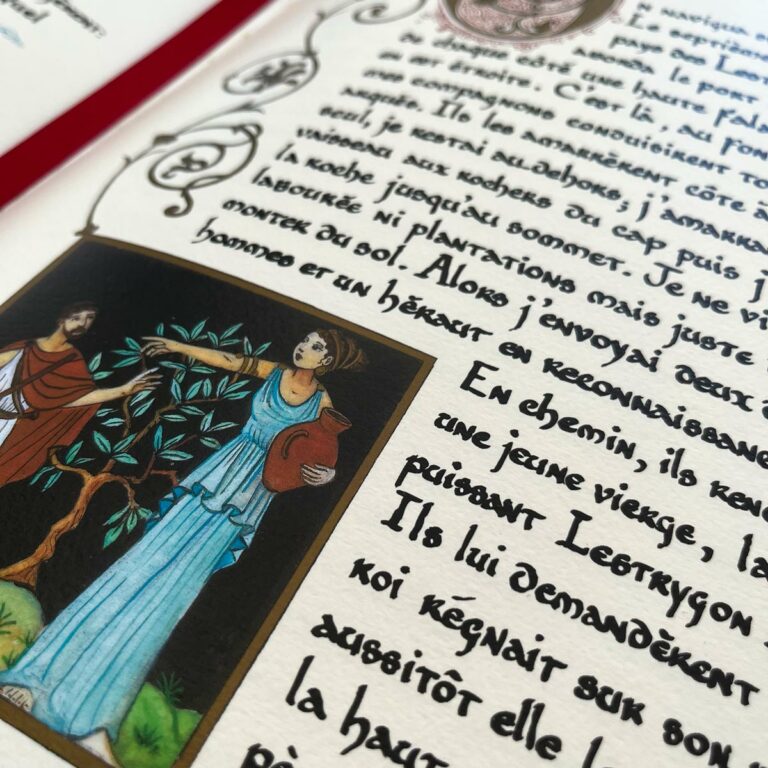 n navigua
Le septième
pays des Lest
aborda le port
de chaque côté une haute fala
en est étroite. C'est là, au fon
mes compagnons conduisirent to
arqués. Ils les amarrèrent côte à
seul, je restai au dehors; j'amarra
vaisseau aux rochers du cap puis j
la roche jusqu'au sommet. Je ne vi
labourée ni plantations mais juste
monter du sol. Alors j'envoyai deux
hommes et un héraut en reconnaissanc
En chemin, ils renc
une jeune vierge, la
puissant Lestrygon
Ils lui demandèrent
roi régnait sur son
aussitôt elle l
la haut
pè